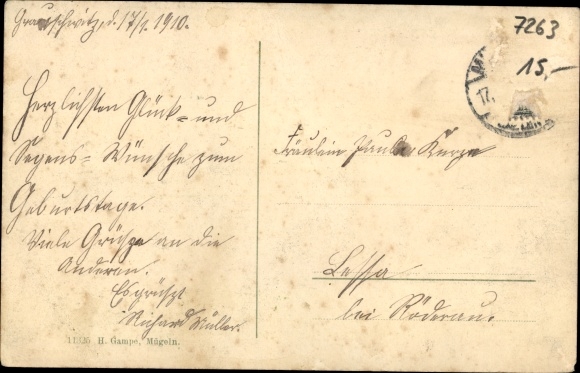 Grauschwitz, d. 17/1. 1910.
Herzlichsten Glück= und
Segens= Wünsche zum
Geburtstage.
Viele Grüße an die
Anderen.
Es grüßt
Richard Müller.
11325 H. Gampe, Mügeln.
7263
15,-
17.
Fräulein Paula
Lessa
bei Röderau.